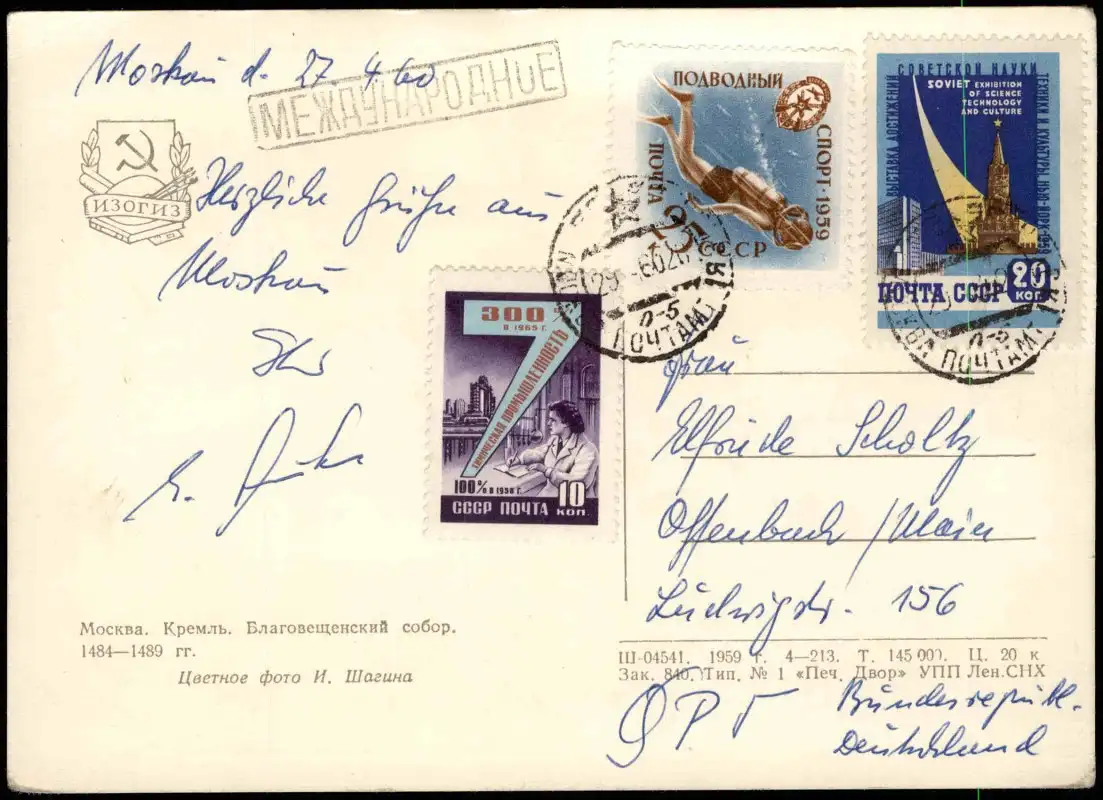 Moskau d. 27.4.60
МЕЖДУНАРОДНОЕ
ИЗОГИЗ
Herzliche Grüße aus
Moskau
Ihr
ПОДВОДНЫЙ
СПОРТ·1959
ПОЧТА
25
СССР
СОВЕТСКОЙ НАУКИ
ТЕХНИКИ И КУЛЬТУРЫ
ВЫСТАВКА ДОСТИЖЕНИЙ
SOVIET EXHIBITION
OF SCIENCE
TECHNOLOGY
AND CULTURE
ПОЧТА СССР 20
КОП.
ПОЧТАМТ
ПОЧТАМТ
300%
В 1965 Г.
7
ХИМИЧЕСКАЯ ПРОМЫШЛЕННОСТЬ
100% В 1958 Г.
СССР ПОЧТА 10
КОП.
Frau
Elfriede Scholtz
Offenbach/Main
Ludwigstr. 156
Москва. Кремль. Благовещенский собор.
1484—1489 гг.
Цветное фото И. Шагина
Ш-04541. 1959 г. 4—213. Т. 145 000. Ц. 20 к
Зак. 840. Тип. № 1 «Печ. Двор» УПП Лен.СНХ
ФРГ
Bundesrepubl.
Deutschland